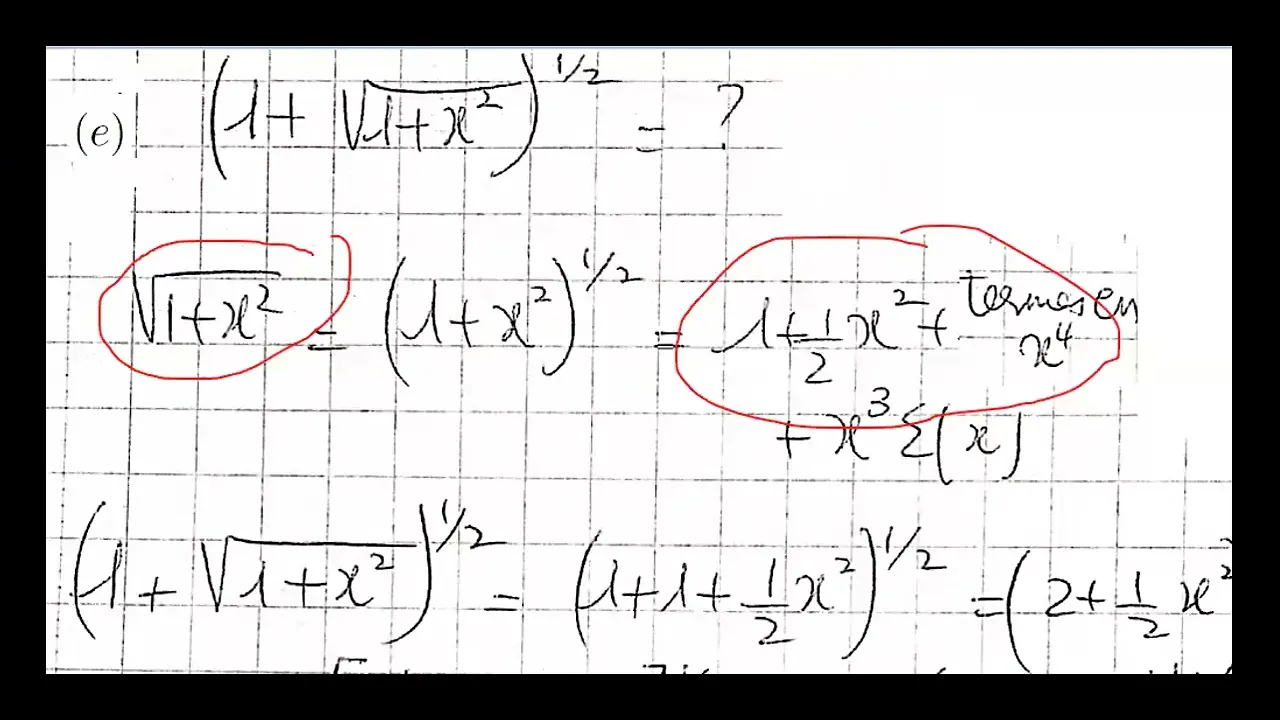 (e) (1 + √(1+x²))^{1/2} = ?
√(1+x²) = (1+x²)^{1/2} = 1 + 1/2 x² + termes en x⁴
+ x³ Σ(x)
(1 + √(1+x²))^{1/2} = (1+1+1/2 x²)^{1/2} = (2+1/2 x²